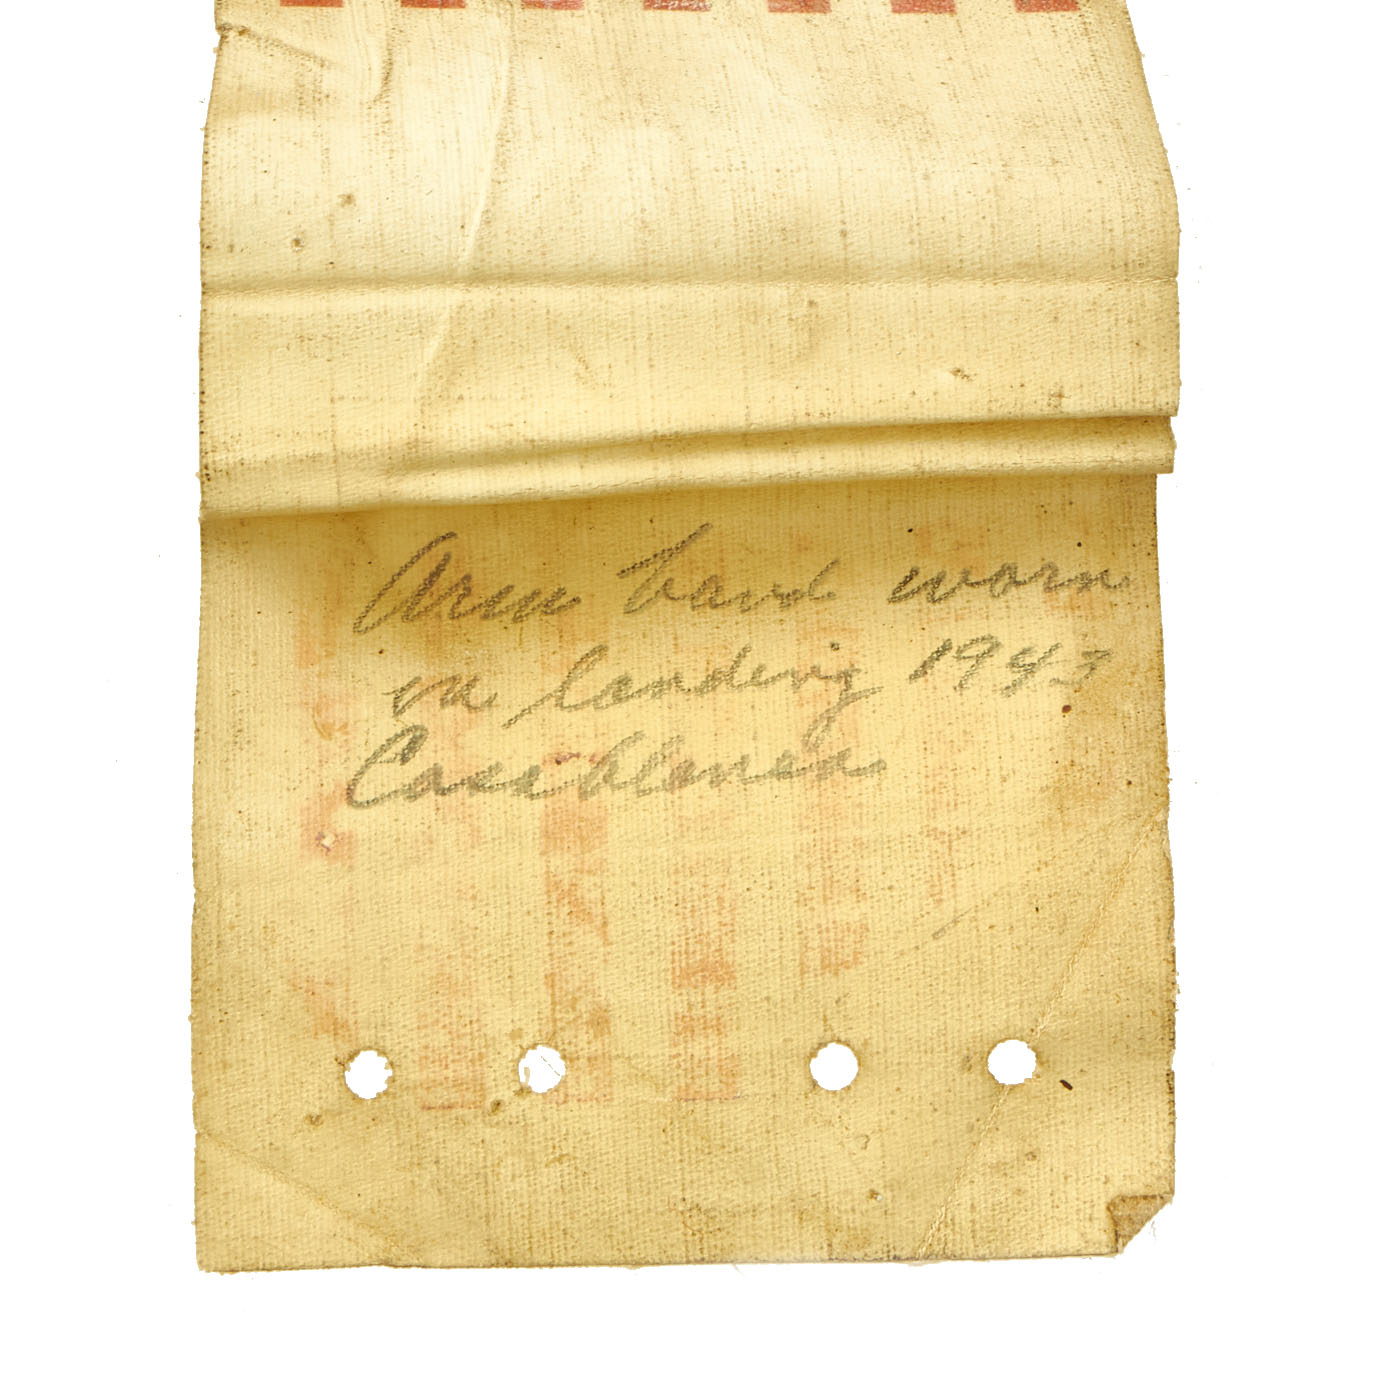 Arm band worn
on landing 1943
Casablanca